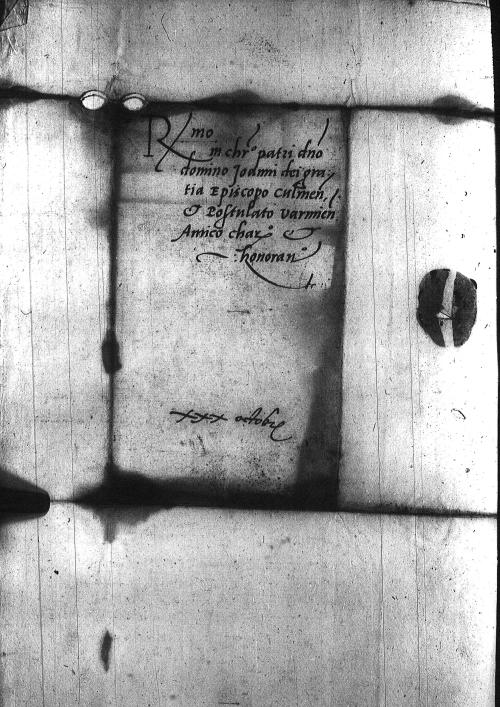 Rmo
in chrº patri dno
domno Joanni dei gra-
tia Episcopo Culmen,
& Postulato Varmien
Amico char. &
honoran.
xxx octobr